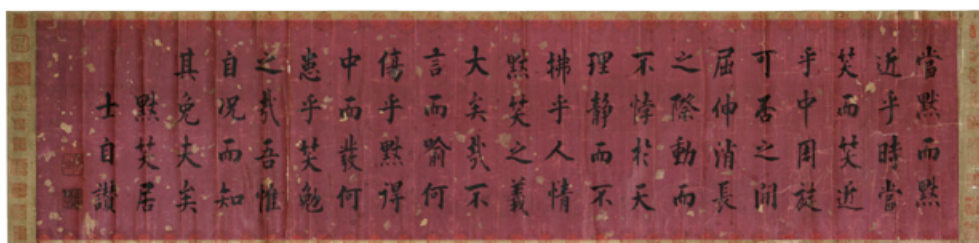 當黙而黙
近乎時當
笑而笑近
乎中周旋
可否之間
屈伸消長
之際動而
不悖於天
理静而不
拂乎人情
黙笑之義
大矣哉不
言而喻何
傷乎黙得
中而發何
患乎笑勉
之哉吾惟
自况而知
其免夫矣
黙笑居
士自讚